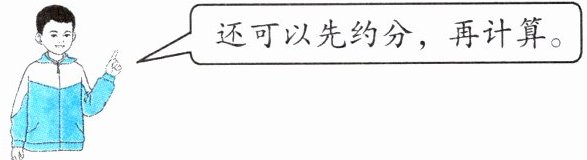 还可以先约分，再计算。